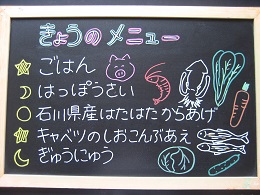 きょうのメニュー
ごはん
はっぽうさい
石川県産はたはたからあげ
キャベツのしおこんぶあえ
ぎゅうにゅう